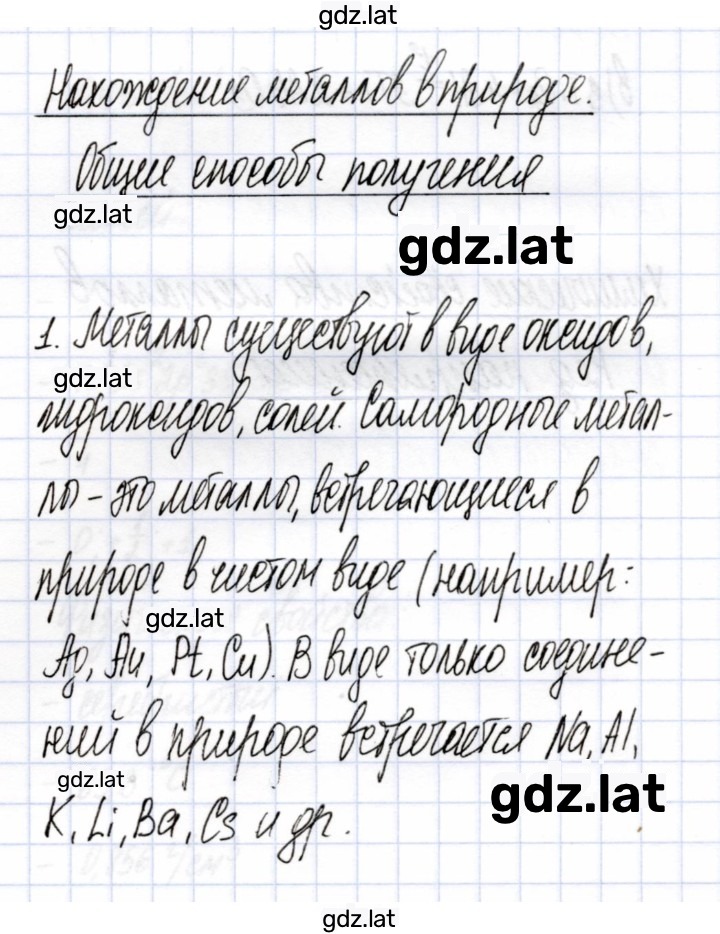 gdz.lat
Нахождение металлов в природе.
Общие способы получения
gdz.lat
gdz.lat
1. Металлы существуют в виде оксидов,
gdz.lat
гидроксидов, солей. Самородные метал-
лы - это металлы, встречающиеся в
природе в чистом виде (например:
gdz.lat
Ag, Au, Pt, Cu). В виде только соедине-
ний в природе встречается Na, Al,
gdz.lat
gdz.lat
K, Li, Ba, Cs и др.
gdz.lat